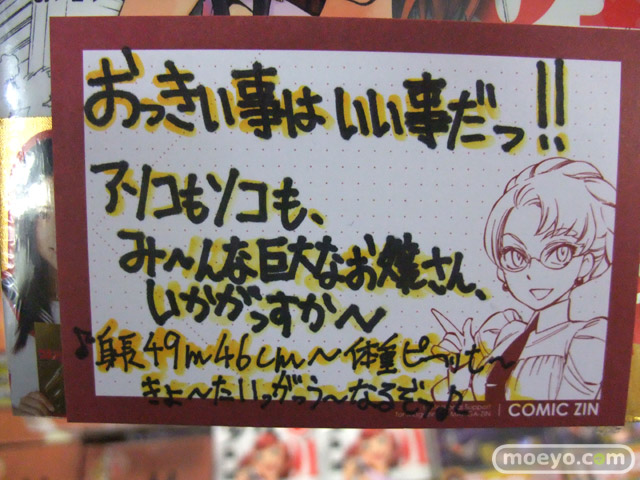 おっきい事はいい事だっ!!
アソコもソコも、
み〜んな巨大なお嬢さん、
いかがっすか〜
♪身長49m46cm〜体重ピーッも〜
きょ〜たいっがっう〜なるぞっ♪
Support
COMIC ZIN
moeyo.com